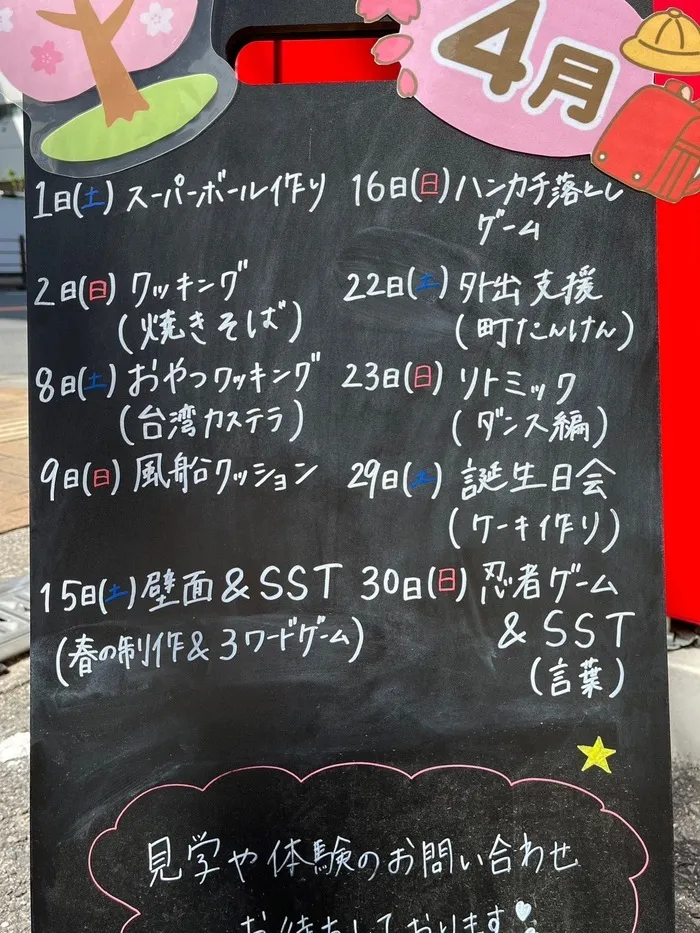 4月
1日(土) スーパーボール作り
2日(日) クッキング
(焼きそば)
8日(土) おやつクッキング
(台湾カステラ)
9日(日) 風船クッション
15日(土) 壁面&SST
(春の制作&3ワードゲーム)
16日(日) ハンカチ落とし
ゲーム
22日(土) 外出支援
(町たんけん)
23日(日) リトミック
(ダンス編)
29日(土) 誕生日会
(ケーキ作り)
30日(日) 忍者ゲーム
&SST
(言葉)
見学や体験のお問い合わせ
お待ちしております